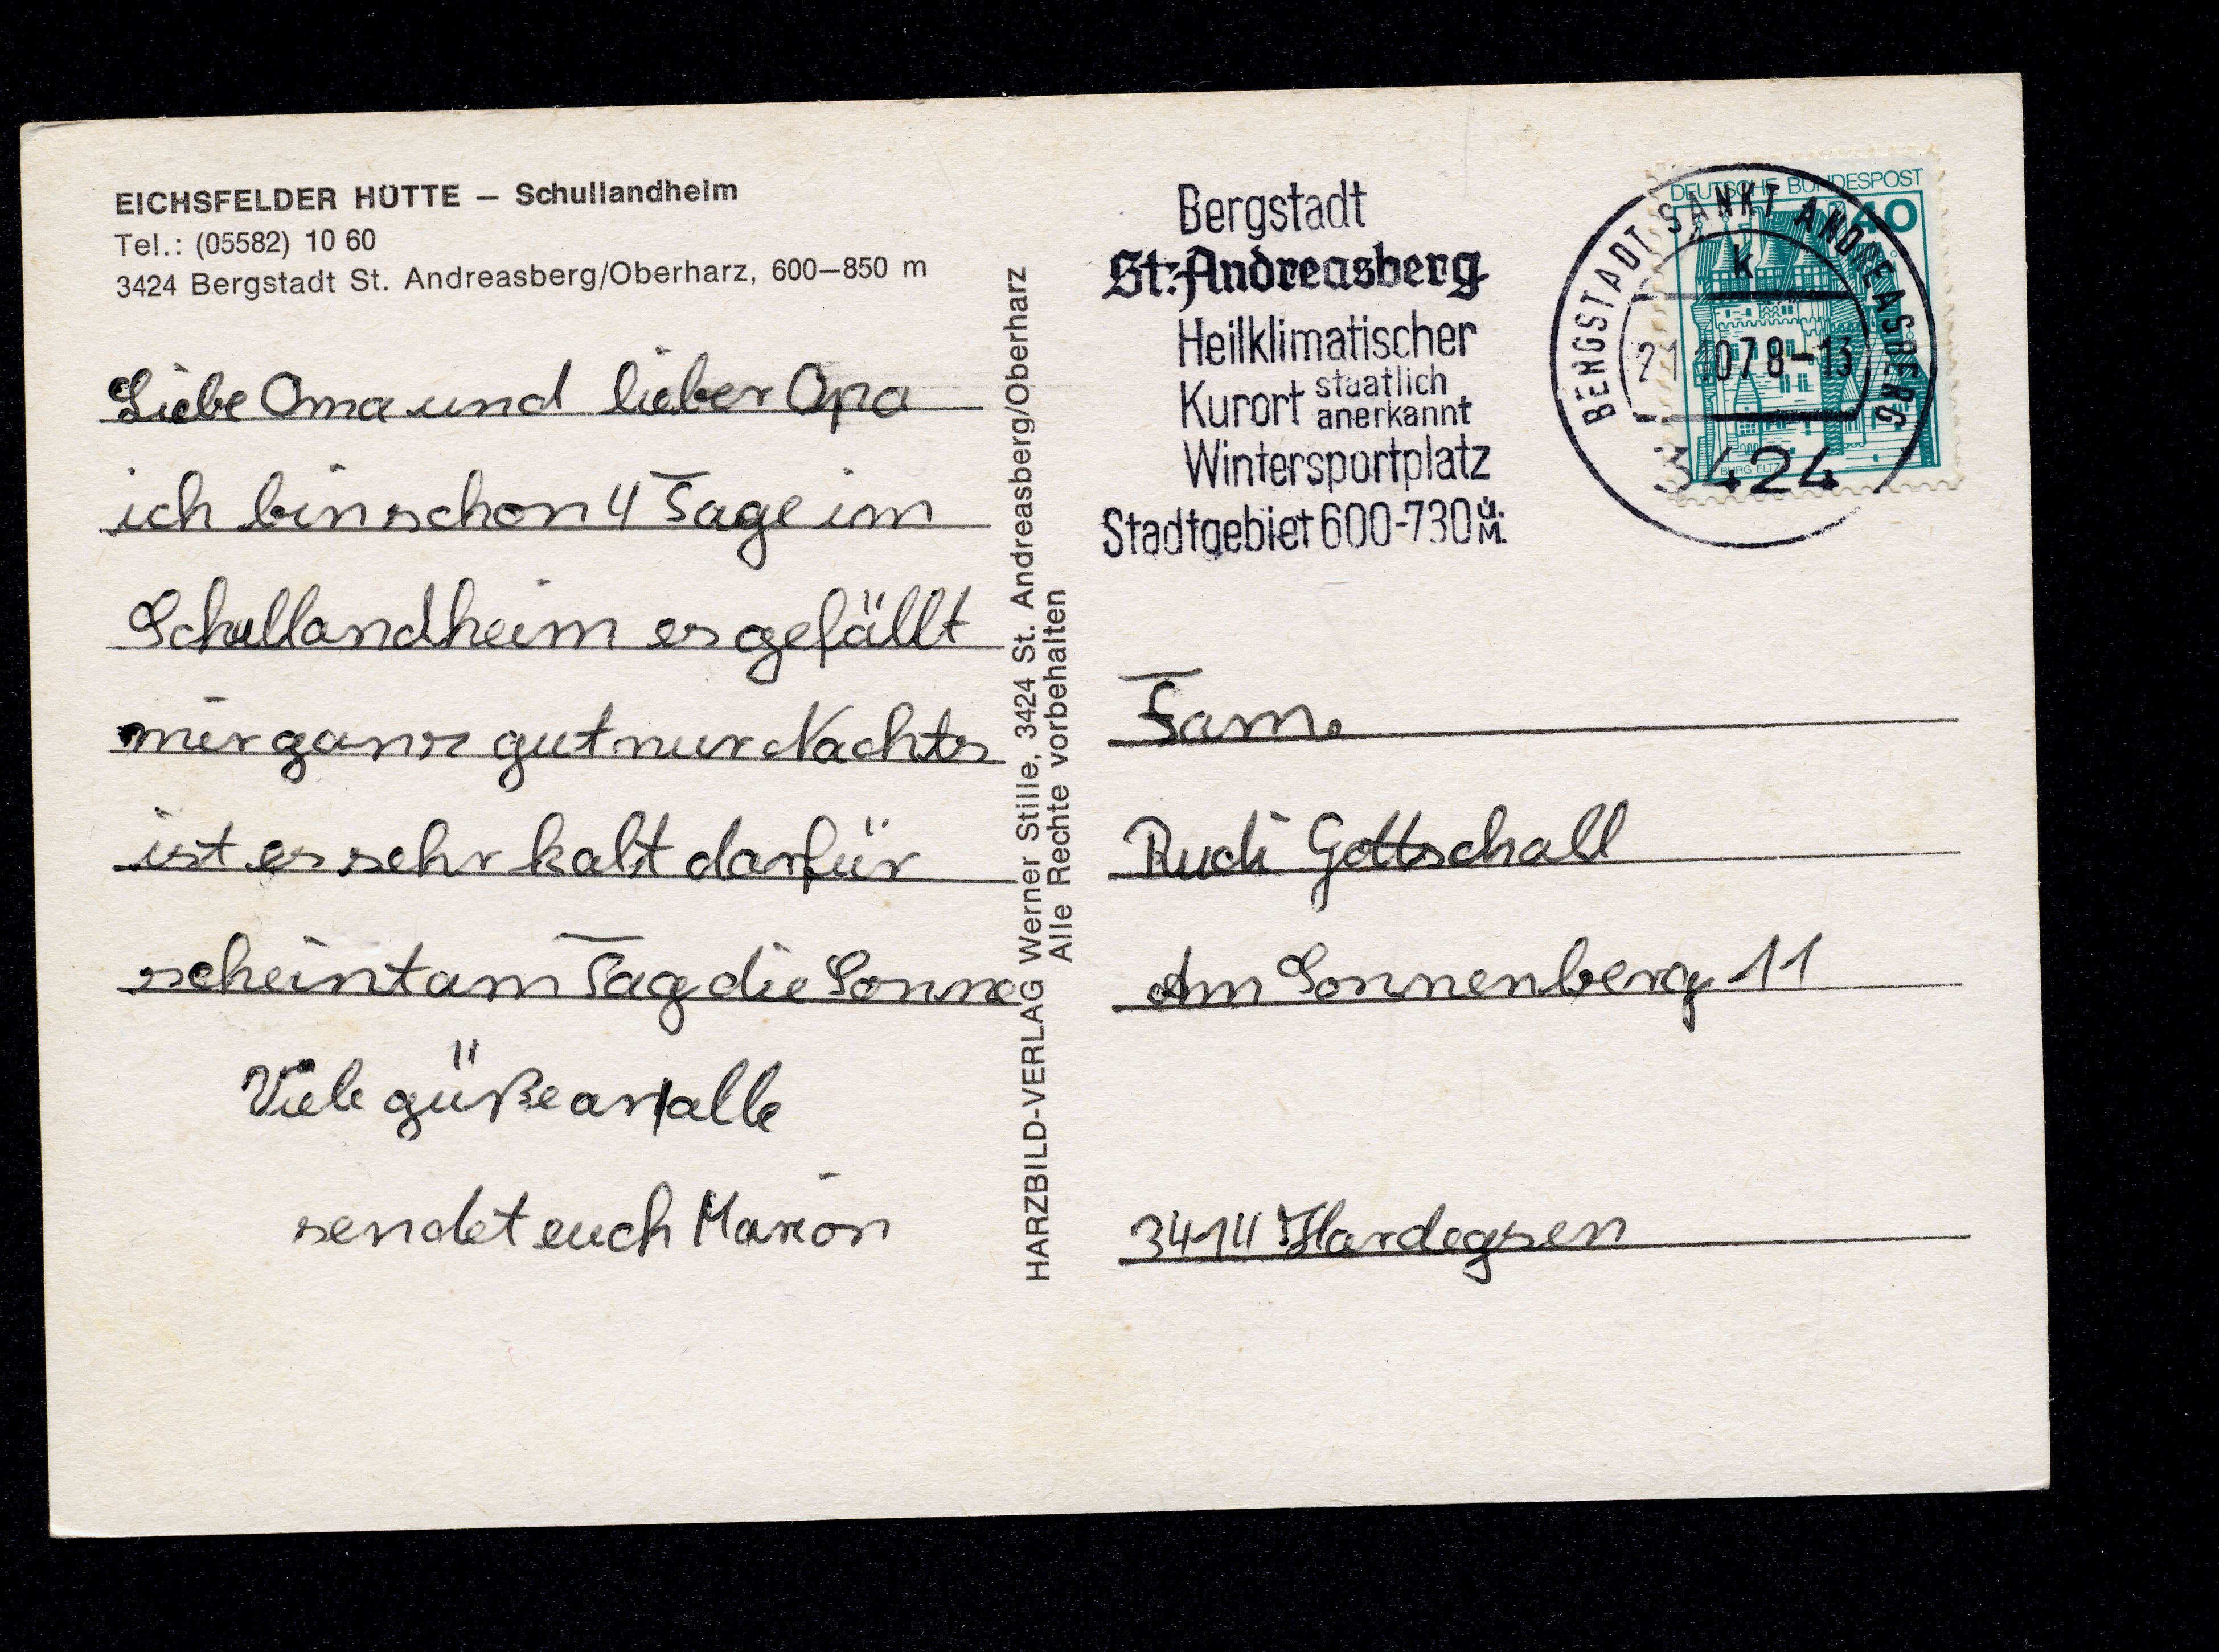 EICHSFELDER HÜTTE – Schullandheim
Tel.: (05582) 10 60
3424 Bergstadt St. Andreasberg/Oberharz, 600–850 m
Liebe Oma und lieber Opa
ich bin schon 4 Tage im
Schullandheim es gefällt
mir ganz gut nur Nachts
ist es sehr kalt darfür
scheint am Tag die Sonne
Viele güße an alle
sendet euch Marion
HARZBILD-VERLAG Werner Stille, 3424 St. Andreasberg/Oberharz
Alle Rechte vorbehalten
Bergstadt
St. Andreasberg
Heilklimatischer
Kurort staatlich anerkannt
Wintersportplatz
Stadtgebiet 600-730 ü. M.
DEUTSCHE BUNDESPOST
40
BURG ELTZ
BERGSTADT SANKT ANDREASBERG
k
21.1078-13
3424
Fam.
Rudi Gottschall
Am Sonnenberg 11
3414 Hardegsen